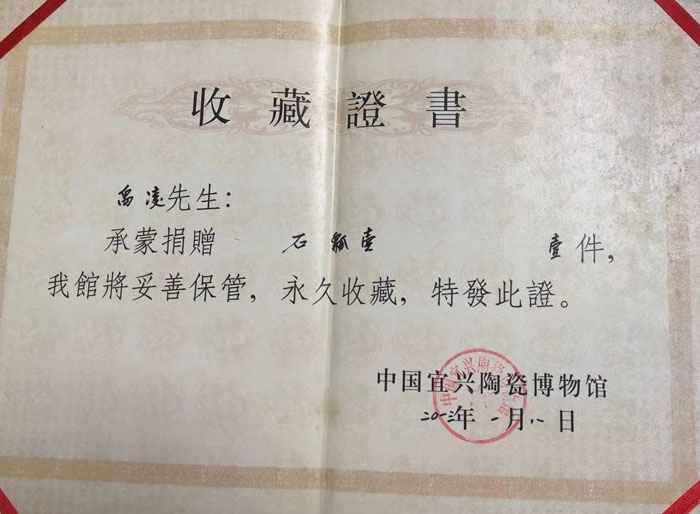 收藏證書
禹凌先生：
承蒙捐贈 石瓢壺 壹件，
我館將妥善保管，永久收藏，特發此證。
中国宜兴陶瓷博物馆
二〇一三年一月八日